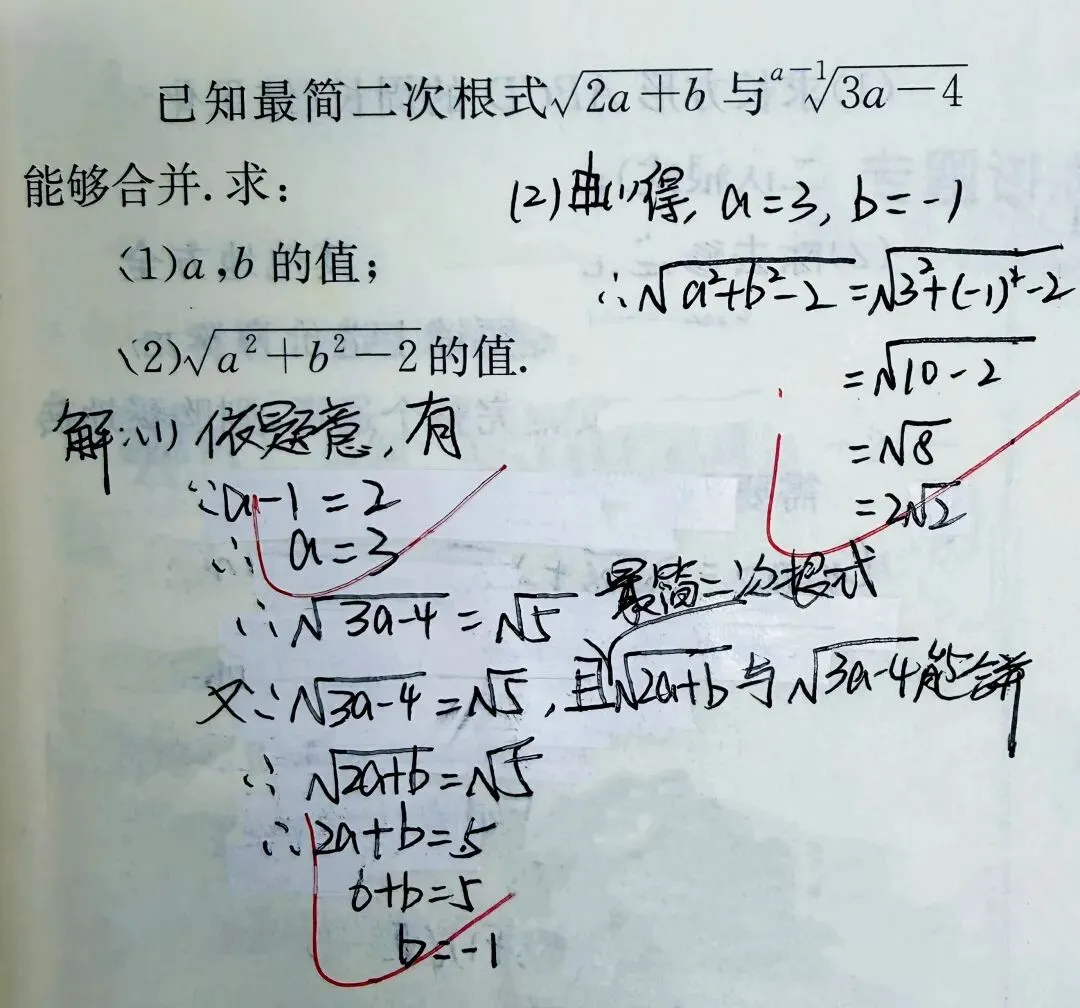 已知最简二次根式√(2a+b)与ᵃ⁻¹√(3a-4)
能够合并.求：
(1)a,b的值；
(2)√(a²+b²-2)的值.
解:(1) 依题意,有
∵a-1=2
∴ a=3
∴√(3a-4)=√5
又∵√(3a-4)=√5,且最简二次根式√(2a+b)与√(3a-4)能合并
∴ √(2a+b)=√5
∴2a+b=5
6+b=5
b=-1
(2)由(1)得, a=3, b=-1
∴√(a²+b²-2)=√(3²+(-1)²-2)
=√(10-2)
=√8
=2√2